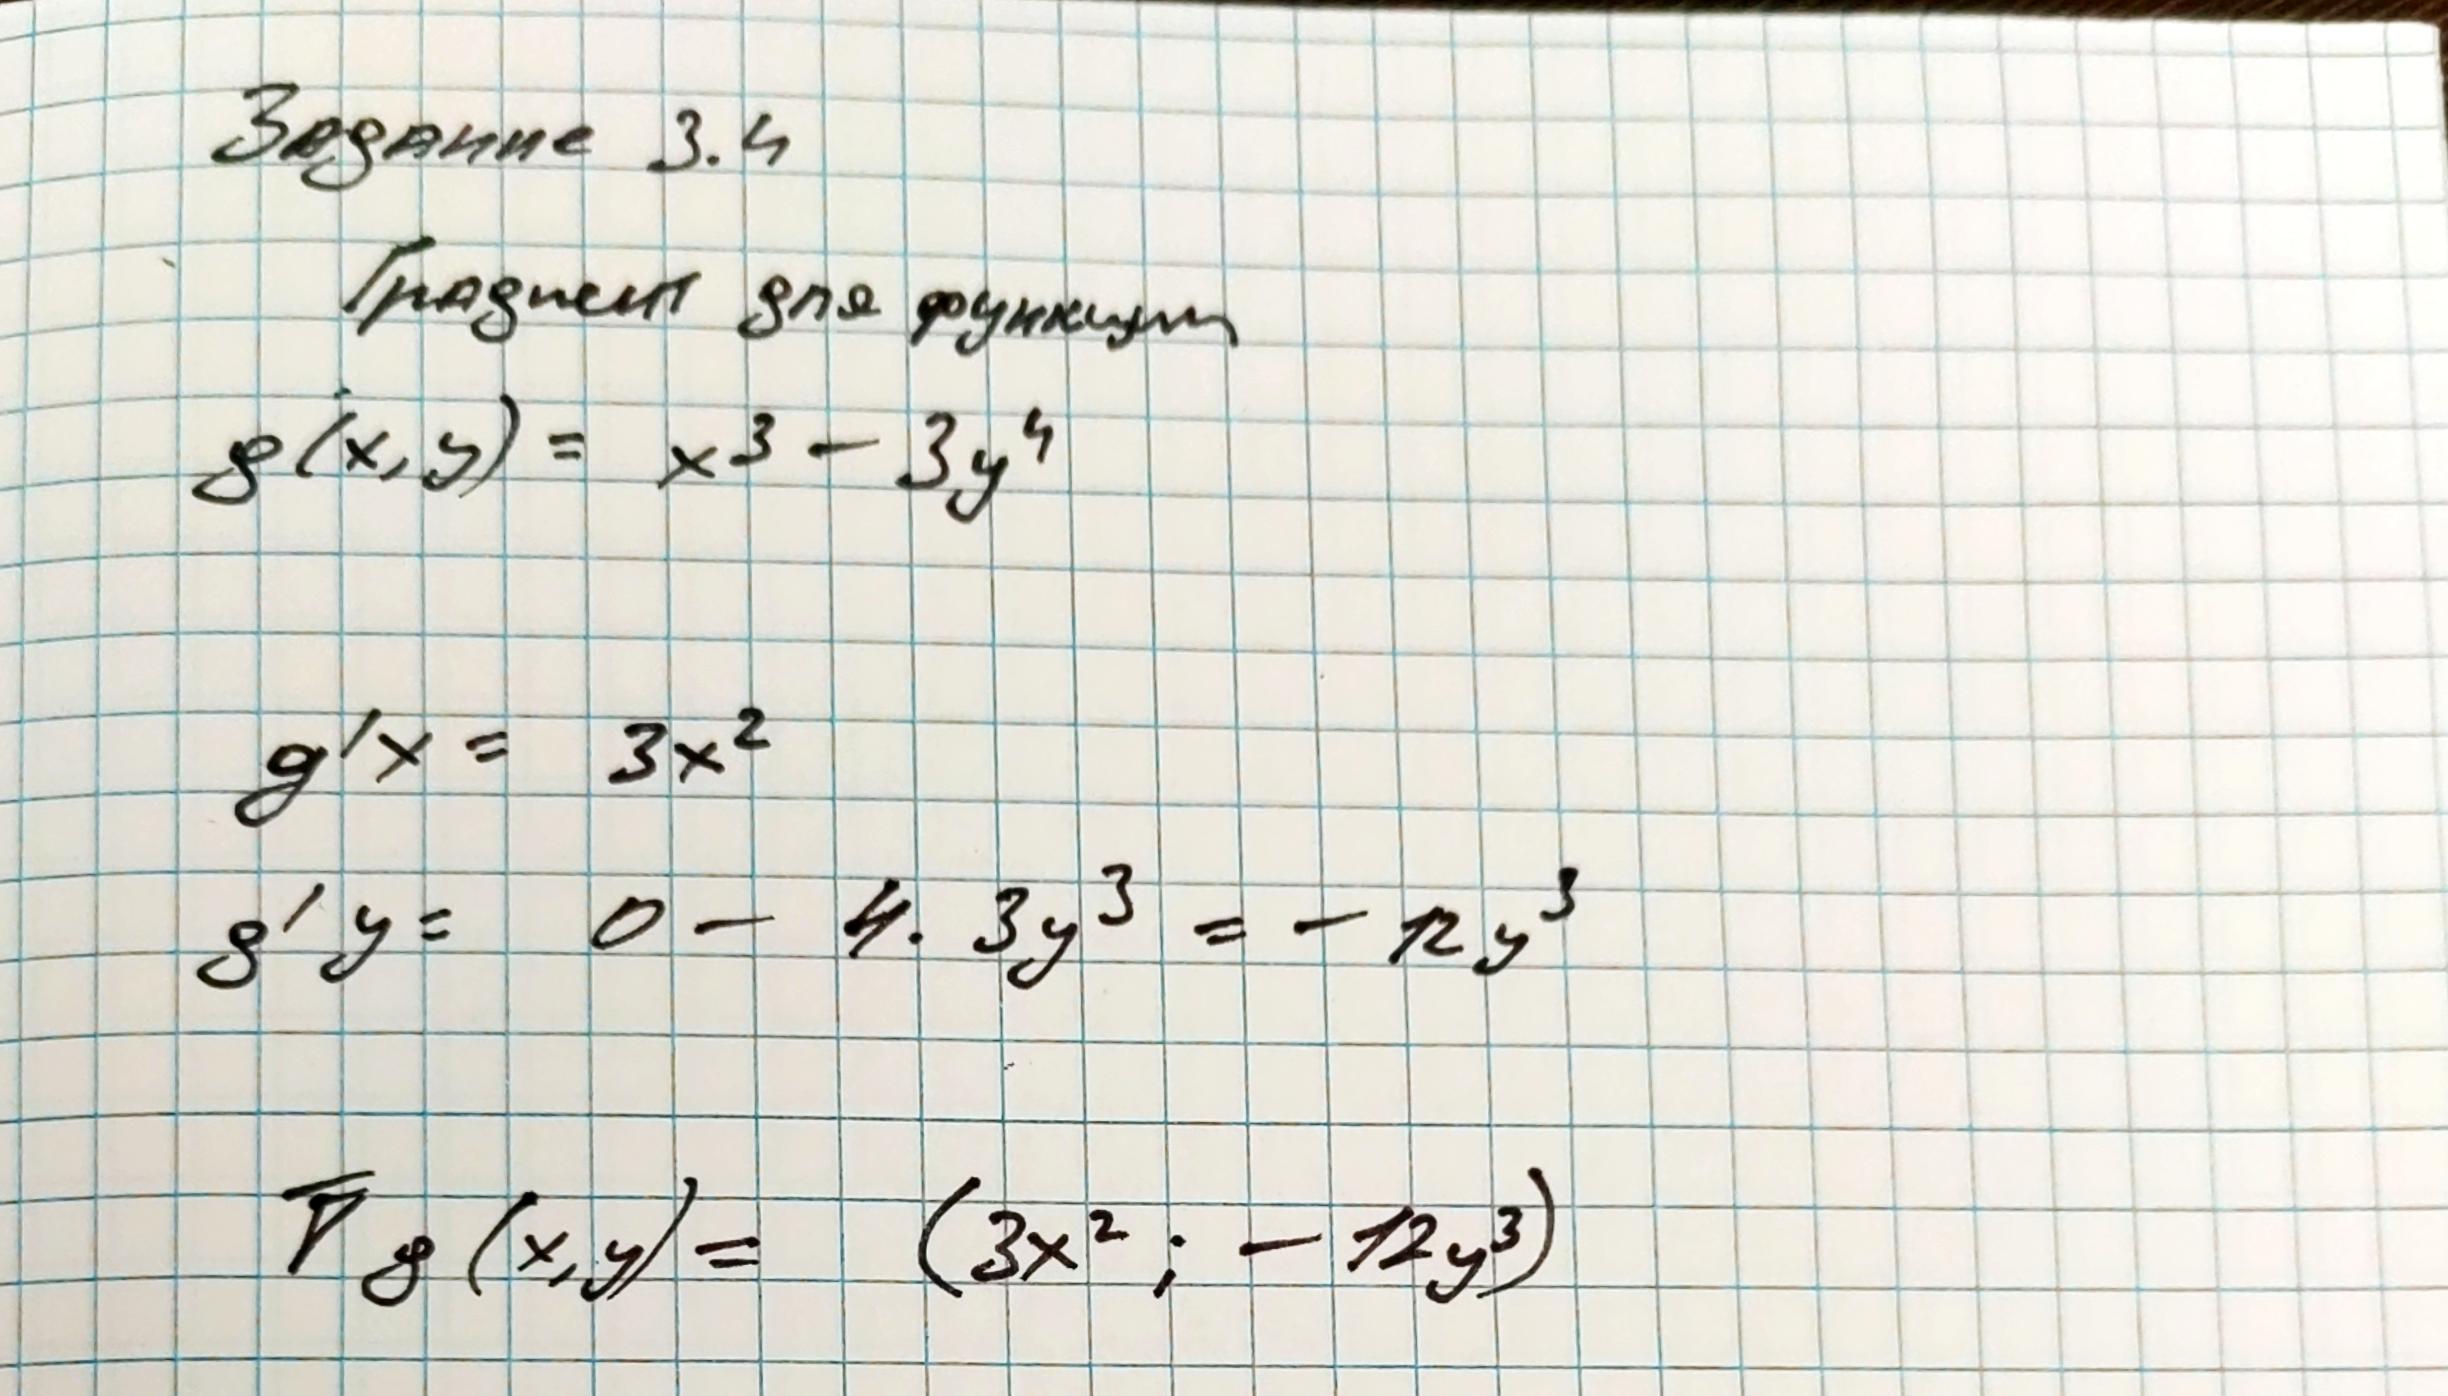 Задание 3.4
Градиент для функции
g(x,y) = x³ - 3y⁴
g'x = 3x²
g'y = 0 - 4. 3y³ = - 12y³
∇g(x,y) = (3x² ; - 12y³)